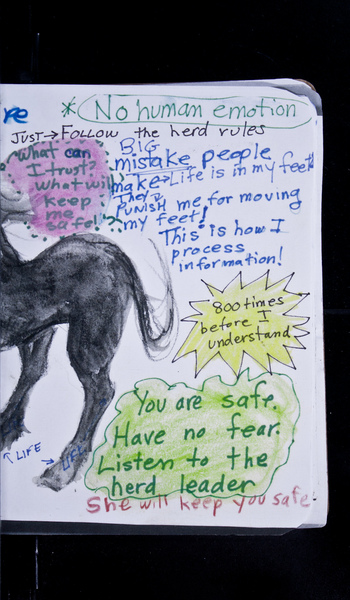 re
* No human emotion
JUST → FOLLOW the herd rules
What can
I trust?
what will
keep
me
safe!?
BIG
mistake people
make → Life is in my feet
They'd
PUNISH me for moving
my feet!
This is how I
process
information!
800 times
before I
understand
You are safe.
Have no fear.
Listen to the
herd leader
She will keep you safe.
LIFE
LIFE